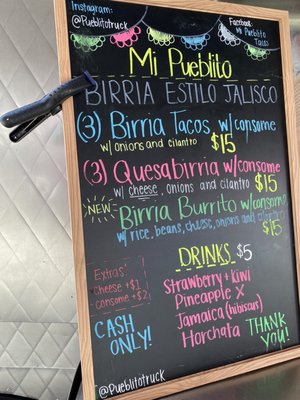 Instagram:
@Pueblitotruck
Facebook
Mi Pueblito
Tacos
Mi Pueblito
BIRRIA ESTILO JALISCO
(3) Birria Tacos w/consome
w/onions and cilantro $15
(3) Quesabirria w/consome
w/ cheese, onions and cilantro $15
NEW Birria Burrito w/consome
w/ rice, beans, cheese, onions and cilantro
$15
DRINKS $5
Extras:
cheese +$1
consome +$2
Strawberry + kiwi
Pineapple X
Jamaica (hibiscus)
Horchata
CASH
ONLY!
THANK
YOU!
@Pueblitotruck